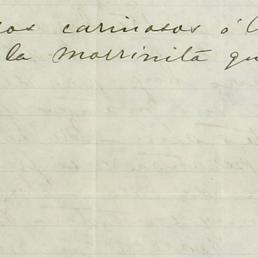 os cariñosos ó
la morrinita qu